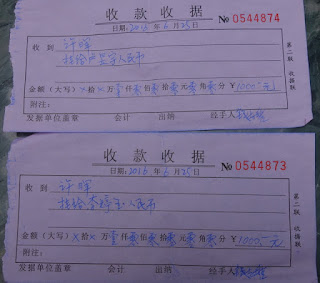 收款收据
日期: 2016年6月25日 № 0544874
收到 许晖
人民币
金额(大写) × 拾 × 万 壹 仟 零 佰 零 拾 零 元 零 角 零 分 ¥1000元
附注:
发据单位盖章 会计 出纳 经手人
第二联 收据联
收款收据
日期: 2016年6月25日 № 0544873
收到 许晖
人民币
金额(大写) × 拾 × 万 壹 仟 零 佰 零 拾 零 元 零 角 零 分 ¥1000元
附注:
发据单位盖章 会计 出纳 经手人
第二联 收据联